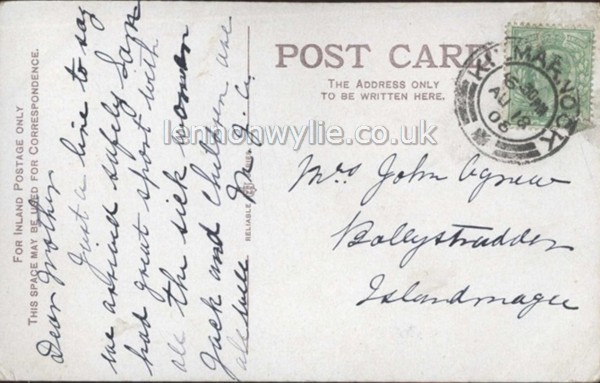 FOR INLAND POSTAGE ONLY
THIS SPACE MAY BE USED FOR CORRESPONDENCE.
Dear Mother
Just a line to say
we arrived safely
had great sport with
all the sick women
Jack and children are
all well M. J. A.
POST CARD
THE ADDRESS ONLY
TO BE WRITTEN HERE.
RELIABLE
KILMARNOCK
AU 18
Mrs John Agnew
Ballystrudder
Islandmagee
lennonwylie.co.uk